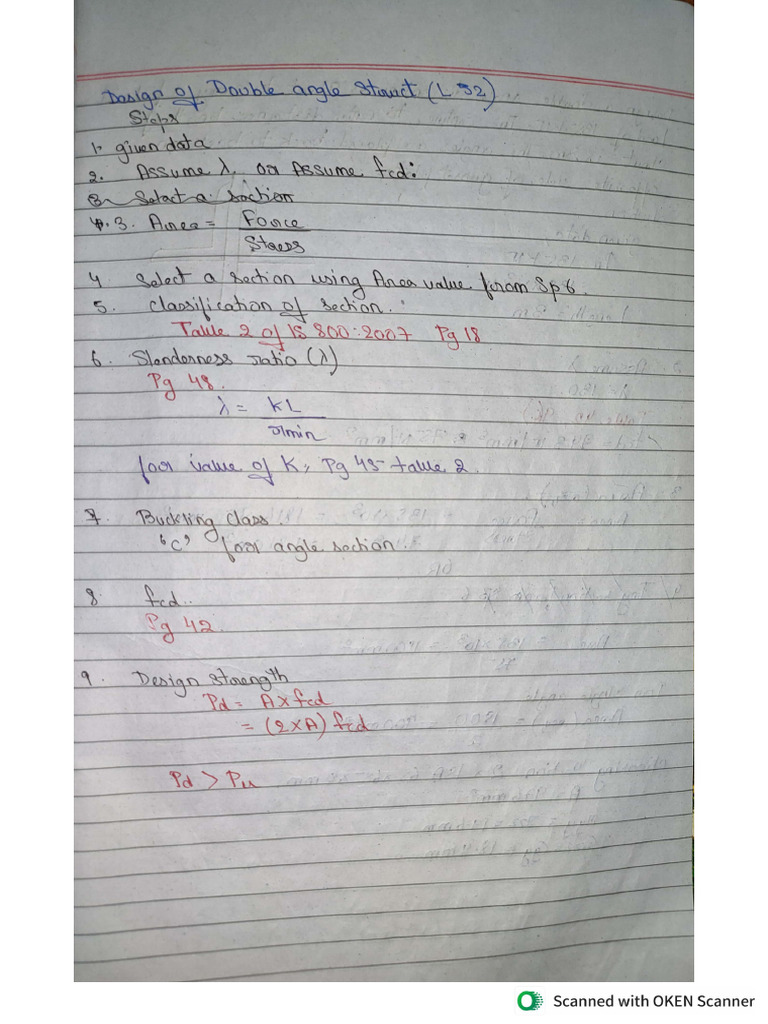 Design of Double angle Struct (L 52)
Steps
1. given data
2. Assume λ, or Assume fcd:
3. Select a section
4. 3. Area = Force
Stress
4 Select a section using Area value from Sp 6.
5. Classification of section.
Table 2 of IS 800:2007 Pg 18
6. Slenderness ratio (λ)
Pg 48.
λ = KL
rmin
for value of K, Pg 45- table 2.
7. Buckling class.
'C' for angle section.
8. fcd..
Pg 42.
9. Design strength
Pd = A x fcd
= (2xA) fcd
Pd > Pu
Scanned with OKEN Scanner